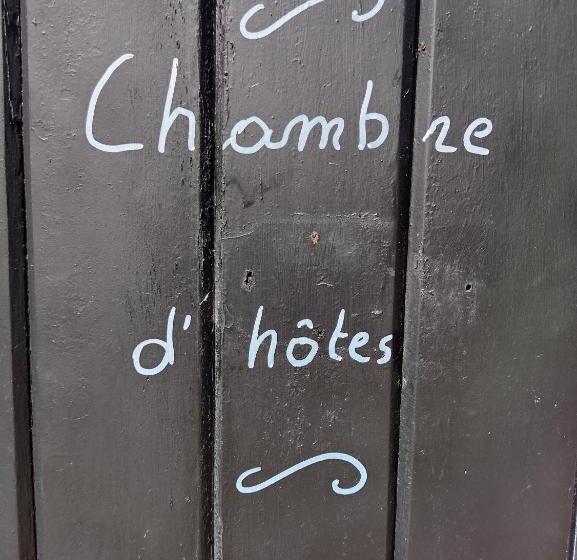 Chambre
d'hôtes